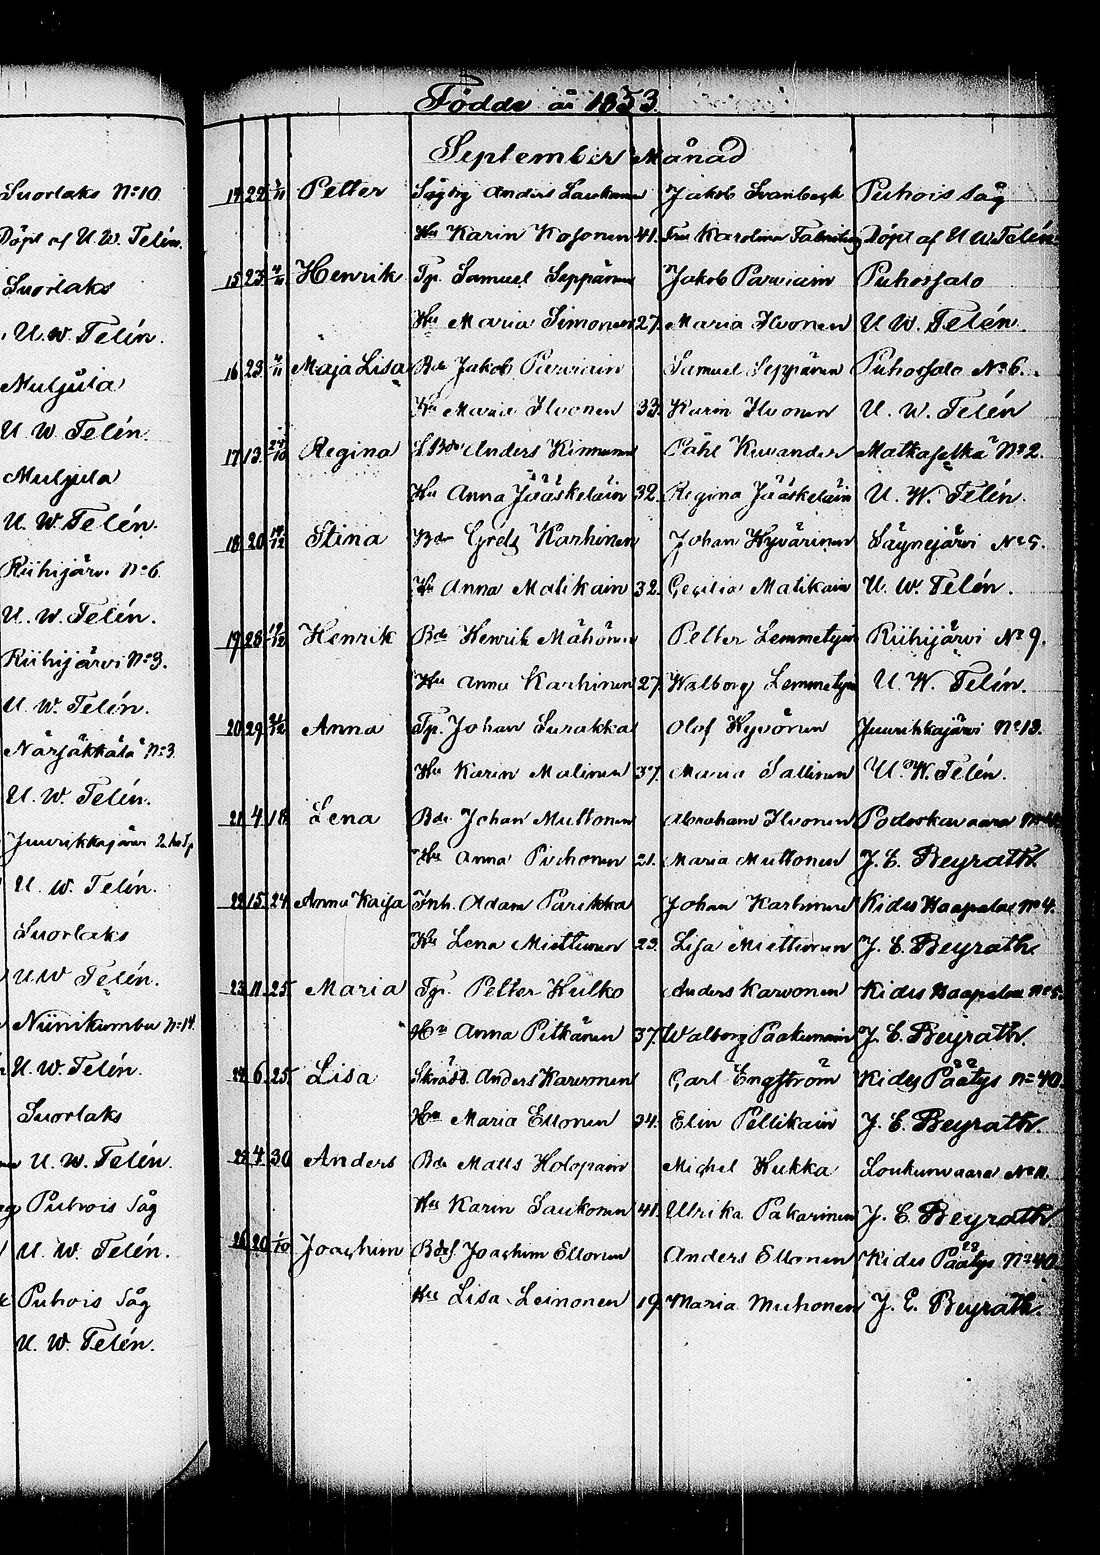 Födde år 1853.
September Månad
Suorlaks No 10
Döpt af U. W. Telén.
Suorlaks
U. W. Telén.
Muljula
U. W. Telén.
Muljula
U. W. Telén.
Riihijärvi No 6
U. W. Telén.
Riihijärvi No 3.
U. W. Telén.
Närsäkkälä No 3
U. W. Telén.
Juurikkajärvi
U. W. Telén.
Suorlaks
U W Telén.
Niinikumbu No 14
U. W. Telén.
Suorlaks
U. W. Telén.
Puhois Såg
U. W. Telén.
Puhois Såg
U. W. Telén.
22 Petter Anders Laukanen Jakob Svanbeck Puhois Såg
Hu Karin Kosonen 41. Karolina Döpt af U W Telén
15 23 Henrik Tp. Samuel Seppänen Jakob Parviain Puhossalo
Hu Maria Simonen 27. Maria Ilvonen U W. Telén.
16 23 Maja Lisa Bde Jakob Parviain Samuel Seppänen Puhossalo No 6.
Hu Maria Ilvonen 33. Karin Ilvonen U. W. Telén
17 13 Regina Anders Kinnunen Påhl Kuvander Matkaselkä No 2.
Hu Anna Jääskeläin 32. Regina Jääskeläin U. W. Telén.
18 20 Stina Bde Karhinen Johan Hyvärinen Säynejärvi No 5.
Hu Anna Matikain 32. Cecilia Matikain U. W. Telén.
19 28 Henrik Bde Henrik Mähönen Petter Lemmetyin Riihijärvi No 9.
Hu Anna Karhinen 27. Walborg Lemmetyin U. W. Telén.
20 29 Anna Tp. Johan Surakka Olof Hyvönen Juurikkajärvi No 13.
Hu Karin Malinen 37. Maria Sallinen U. W. Telén.
21 4 18 Lena Bde Johan Muttonen Abraham Ilvonen Potoskavaara
Hu Anna Puhonen 21. Maria Muttonen J. E. Beyrath.
22 15 24 Anna Kaisa Inh. Adam Parikka Johan Karhinen Kides Haapalax No 4.
Hu Lena Miettinen 23. Lisa Miettinen J. E. Beyrath.
23 11 25 Maria Tp. Petter Hulko Anders Karvonen Kides Haapalax No 5.
Hu Anna Pitkänen 37. Walborg Paakunain J. E. Beyrath.
24 6 25 Lisa Skrädd. Anders Karvonen Carl Engström Kides Päätys No 40.
Hu Maria Ellonen 34. Elin Pellikain J. E. Beyrath.
25 4 30 Anders Bde Matts Holopain Michel Kukka Loukunvaara No 11.
Hu Karin Saukonen 41. Ulrika Pakarinen J. E. Beyrath.
26 20 1/10 Joachim Bdes. Joachim Ellonen Anders Ellonen Kides Päätys No 40.
Hu Lisa Leinonen 19. Maria Muhonen J. E. Beyrath.